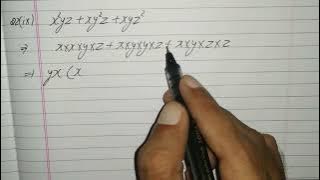 Q2(ix) x²yz + xy²z + xyz²
⇒ x×x×y×z + x×y×y×z + x×y×z×z
⇒ yx (x